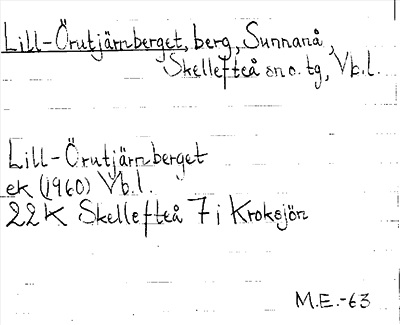 Lill-Örutjärnberget, berg, Sunnanå,
Skellefteå sn o. tg, Vb.l.
Lill-Örutjärnberget
ek (1960) Vb.l.
22K Skellefteå 7 i Kroksjön
M.E.-63